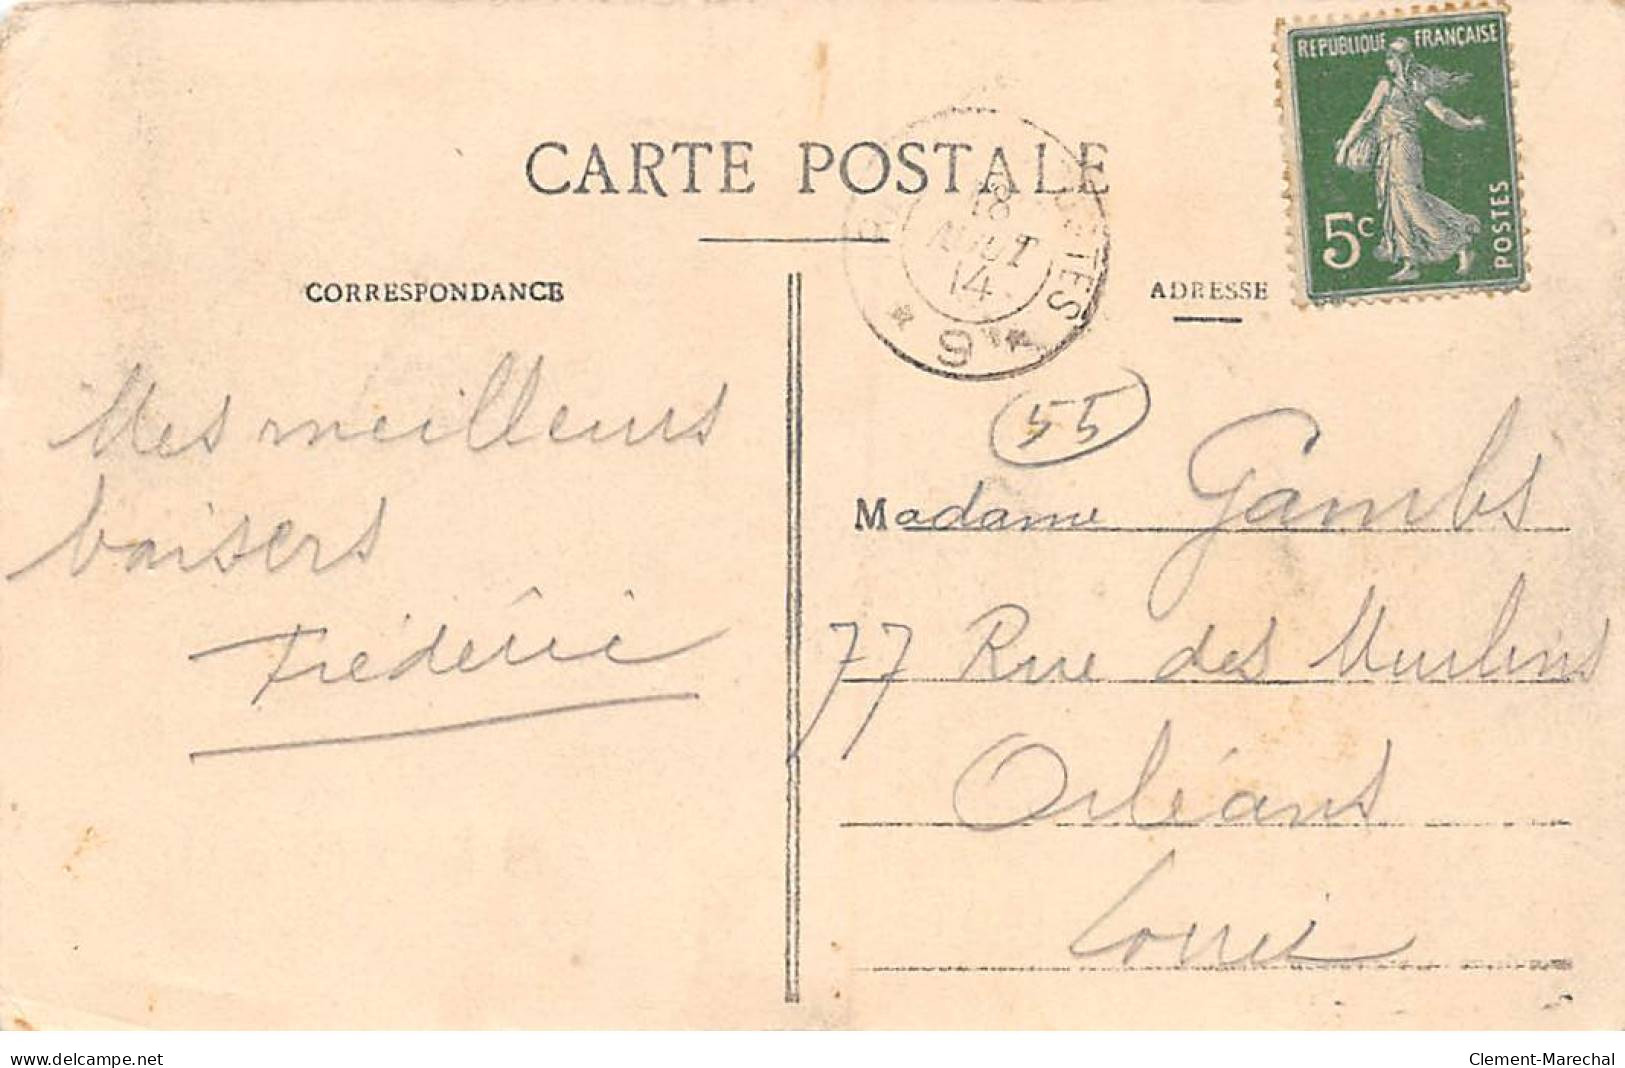 RÉPUBLIQUE FRANÇAISE
5c
POSTES
CARTE POSTALE
18
AOUT
14
POSTES
* 9 *
CORRESPONDANCE
ADRESSE
55
Mes meilleurs
baisers
Frédéric
Madame Gambs
77 Rue des Murlins
Orléans
Loiret
www.delcampe.net
Clement-Marechal